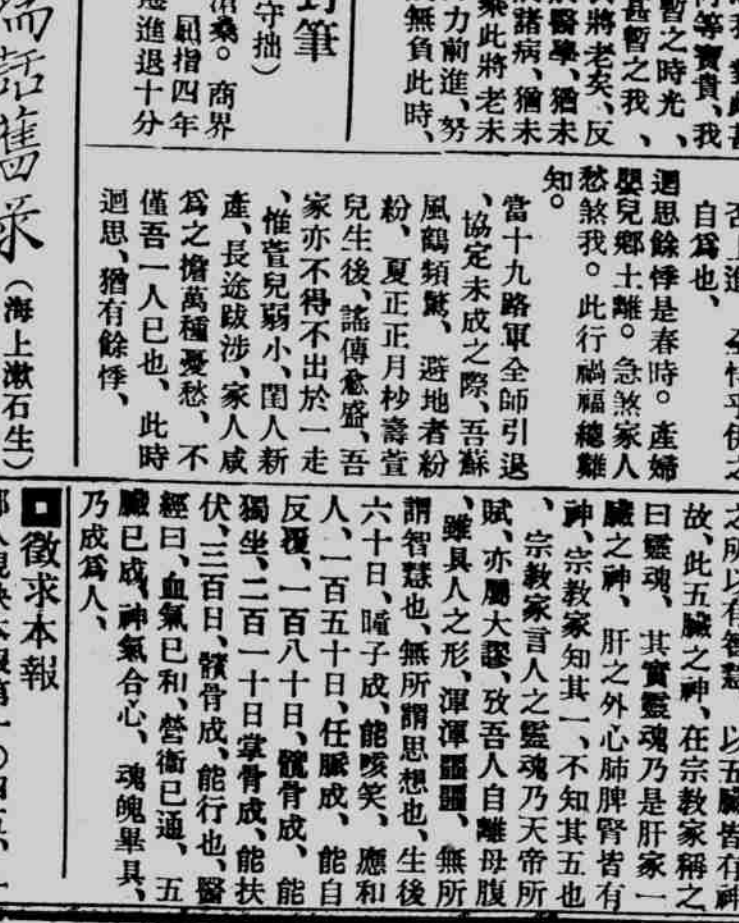 等寶貴、我
暫之時光、
甚暫之我、
將老矣、反
醫學、猶未
諸病、猶未
乘此將老未
力前進、努
無負此時、
筆
守拙）
滄桑。商界
屈指四年
進退十分
自爲也、
迴思餘悸是春時。產婦
嬰兒鄉土離。急煞家人
愁煞我。此行禍福總難
知。
當十九路軍全師引退
、協定未成之際、吾蘇
風鶴頻驚、避地者紛
紛、夏正正月杪壽萱
兒生後、謠傳愈盛、吾
家亦不得不出於一走
、惟萱兒弱小、閨人新
產、長途跋涉、家人咸
爲之擔萬種憂愁、不
僅吾一人已也、此時
迴思、猶有餘悸、
話舊
（海上漱石生）
之所以有智慧、以五臟皆有神
故、此五臟之神、在宗教家稱之
曰靈魂、其實靈魂乃是肝家一
臟之神、肝之外心肺脾腎皆有
神、宗教家知其一、不知其五也
、宗教家言人之靈魂乃天帝所
賦、亦屬大謬、攷吾人自離母腹
、雖具人之形、渾渾噩噩、無所
謂智慧也、無所謂思想也、生後
六十日、瞳子成、能咳笑、應和
人、一百五十日、任脈成、能自
反覆、一百八十日、髖骨成、能
獨坐、二百一十日掌骨成、能扶
伏、三百日、髕骨成、能行也、醫
經曰、血氣已和、營衞已通、五
臟已成、神氣合心、魂魄畢具、
乃成爲人、
徵求本報